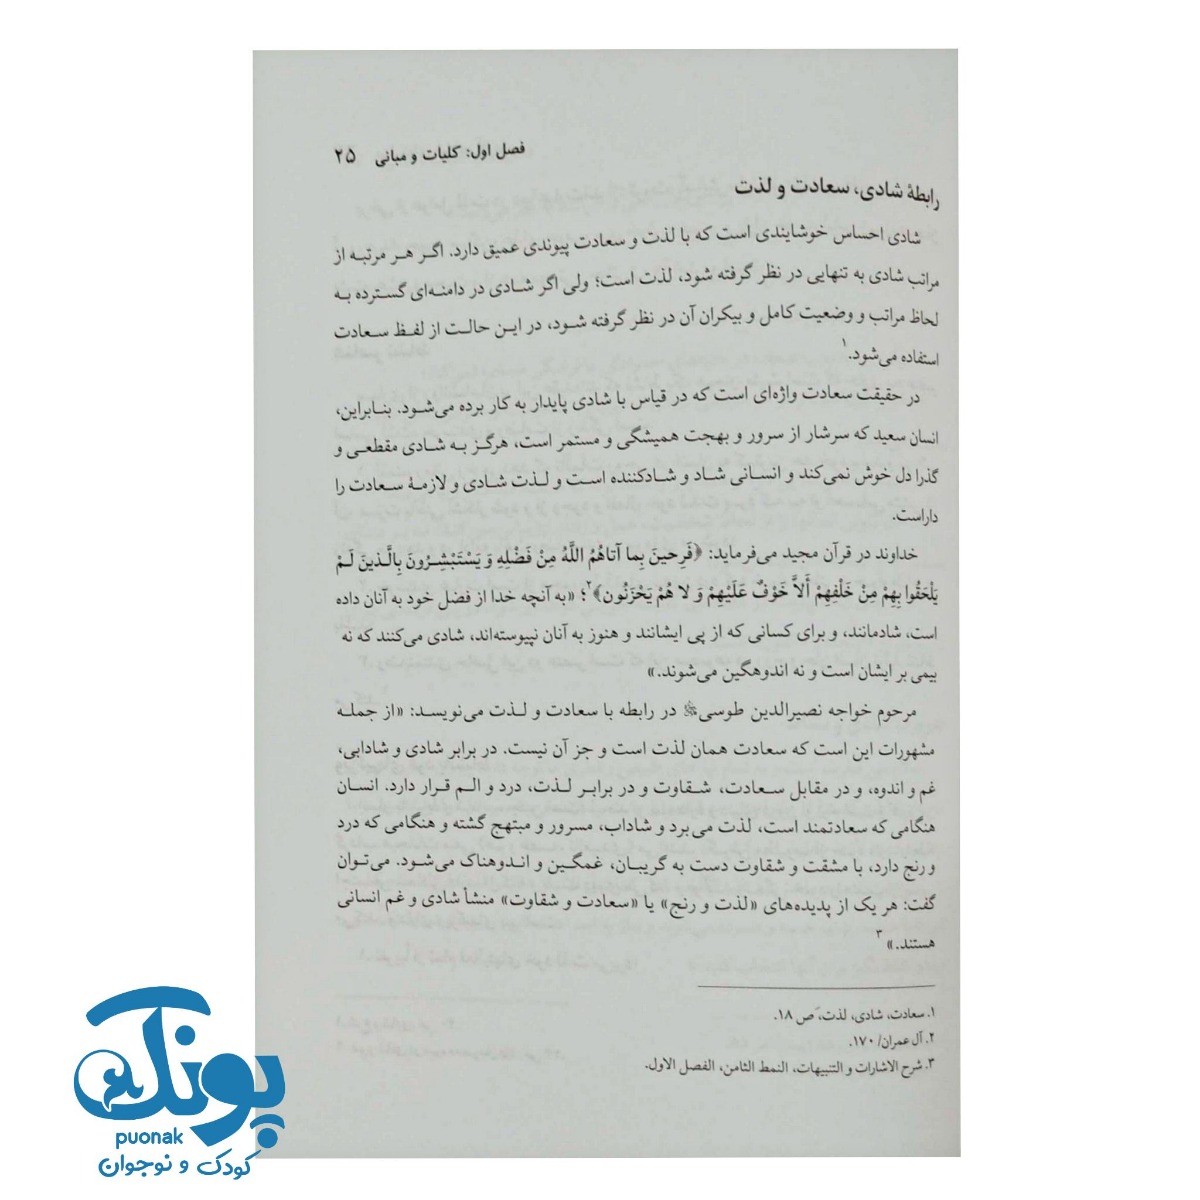 فصل اول: کلیات و مبانی ۲۵
رابطهٔ شادی، سعادت و لذت
شادی احساس خوشایندی است که با لذت و سعادت پیوندی عمیق دارد. اگر هر مرتبه از
مراتب شادی به تنهایی در نظر گرفته شود، لذت است؛ ولی اگر شادی در دامنه‌ای گسترده به
لحاظ مراتب و وضعیت کامل و بیکران آن در نظر گرفته شود، در این حالت از لفظ سعادت
استفاده می‌شود.۱
در حقیقت سعادت واژه‌ای است که در قیاس با شادی پایدار به کار برده می‌شود. بنابراین،
انسان سعید که سرشار از سرور و بهجت همیشگی و مستمر است، هرگز به شادی مقطعی و
گذرا دل خوش نمی‌کند و انسانی شاد و شادکننده است و لذت شادی و لازمهٔ سعادت را
داراست.
خداوند در قرآن مجید می‌فرماید: ﴿فَرِحینَ بِما آتاهُمُ اللَّهُ مِنْ فَضْلِهِ وَ یَسْتَبْشِرُونَ بِالَّذینَ لَمْ
یَلْحَقُوا بِهِمْ مِنْ خَلْفِهِمْ أَلاَّ خَوْفٌ عَلَیْهِمْ وَ لا هُمْ یَحْزَنُون﴾۲؛ «به آنچه خدا از فضل خود به آنان داده
است، شادمانند، و برای کسانی که از پی ایشانند و هنوز به آنان نپیوسته‌اند، شادی می‌کنند که نه
بیمی بر ایشان است و نه اندوهگین می‌شوند.»
مرحوم خواجه نصیرالدین طوسی در رابطه با سعادت و لذت می‌نویسد: «از جمله
مشهورات این است که سعادت همان لذت است و جز آن نیست. در برابر شادی و شادابی،
غم و اندوه، و در مقابل سعادت، شقاوت و در برابر لذت، درد و الم قرار دارد. انسان
هنگامی که سعادتمند است، لذت می‌برد و شاداب، مسرور و مبتهج گشته و هنگامی که درد
و رنج دارد، با مشقت و شقاوت دست به گریبان، غمگین و اندوهناک می‌شود. می‌توان
گفت: هر یک از پدیده‌های «لذت و رنج» یا «سعادت و شقاوت» منشأ شادی و غم انسانی
هستند.»۳
۱. سعادت، شادی، لذت، ص ۱۸.
۲. آل عمران/ ۱۷۰.
۳. شرح الاشارات و التنبیهات، النمط الثامن، الفصل الاول.
پونک
puonak
کودک و نوجوان